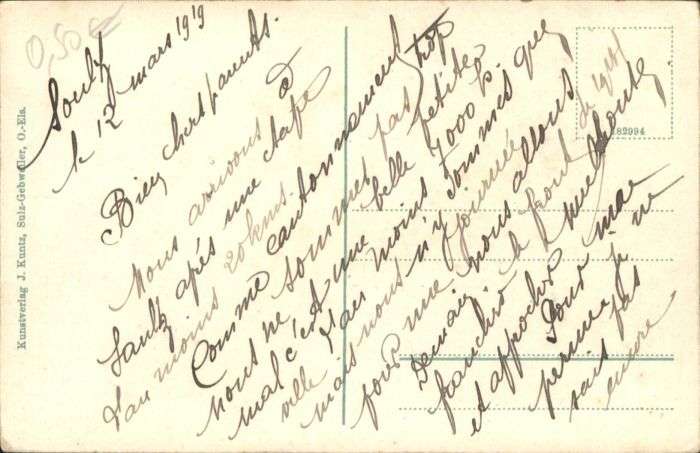 Soultz
le 12 mars 1919
Bien chers parents.
Nous arrivons à
Soultz après une étape
d'au moins 20 kms.
Comme cantonnement
nous ne sommes pas trop
mal c'est une belle petite
ville d'au moins 7000 h.
mais nous n'y sommes que
pour une journée
Demain nous allons
franchir le front de 1914
et approcher Mulhouse
Pour ma
perme je ne
sais pas
encore
0,50
Kunstverlag J. Kuntz, Sulz-Gebweiler, O.-Els.
182994